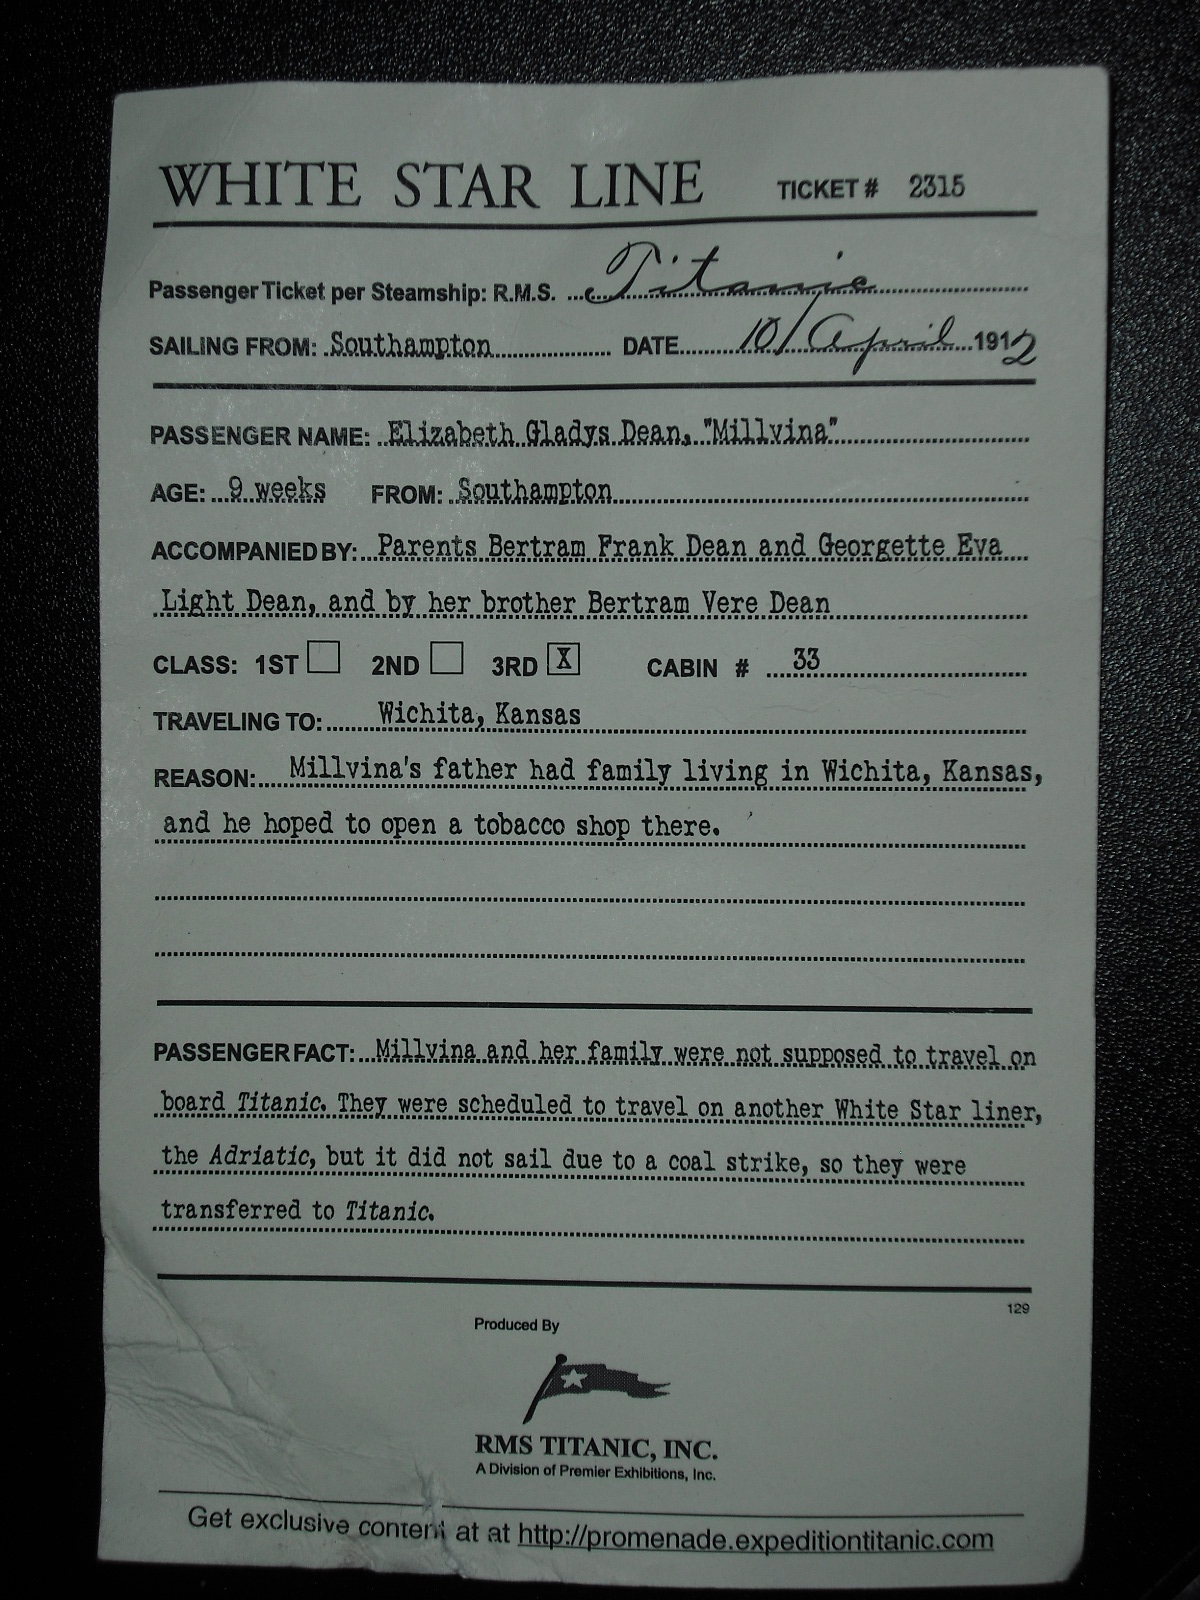 WHITE STAR LINE TICKET # 2315
Passenger Ticket per Steamship: R.M.S. Titanic
SAILING FROM: Southampton DATE 10/April 1912
PASSENGER NAME: Elizabeth Gladys Dean, "Millvina"
AGE: 9 weeks FROM: Southampton
ACCOMPANIED BY: Parents Bertram Frank Dean and Georgette Eva
Light Dean, and by her brother Bertram Vere Dean
CLASS: 1ST 2ND 3RD X CABIN # 33
TRAVELING TO: Wichita, Kansas
REASON: Millvina's father had family living in Wichita, Kansas,
and he hoped to open a tobacco shop there.
PASSENGER FACT: Millvina and her family were not supposed to travel on
board Titanic. They were scheduled to travel on another White Star liner,
the Adriatic, but it did not sail due to a coal strike, so they were
transferred to Titanic.
129
Produced By
RMS TITANIC, INC.
A Division of Premier Exhibitions, Inc.
Get exclusive content at at http://promenade.expeditiontitanic.com